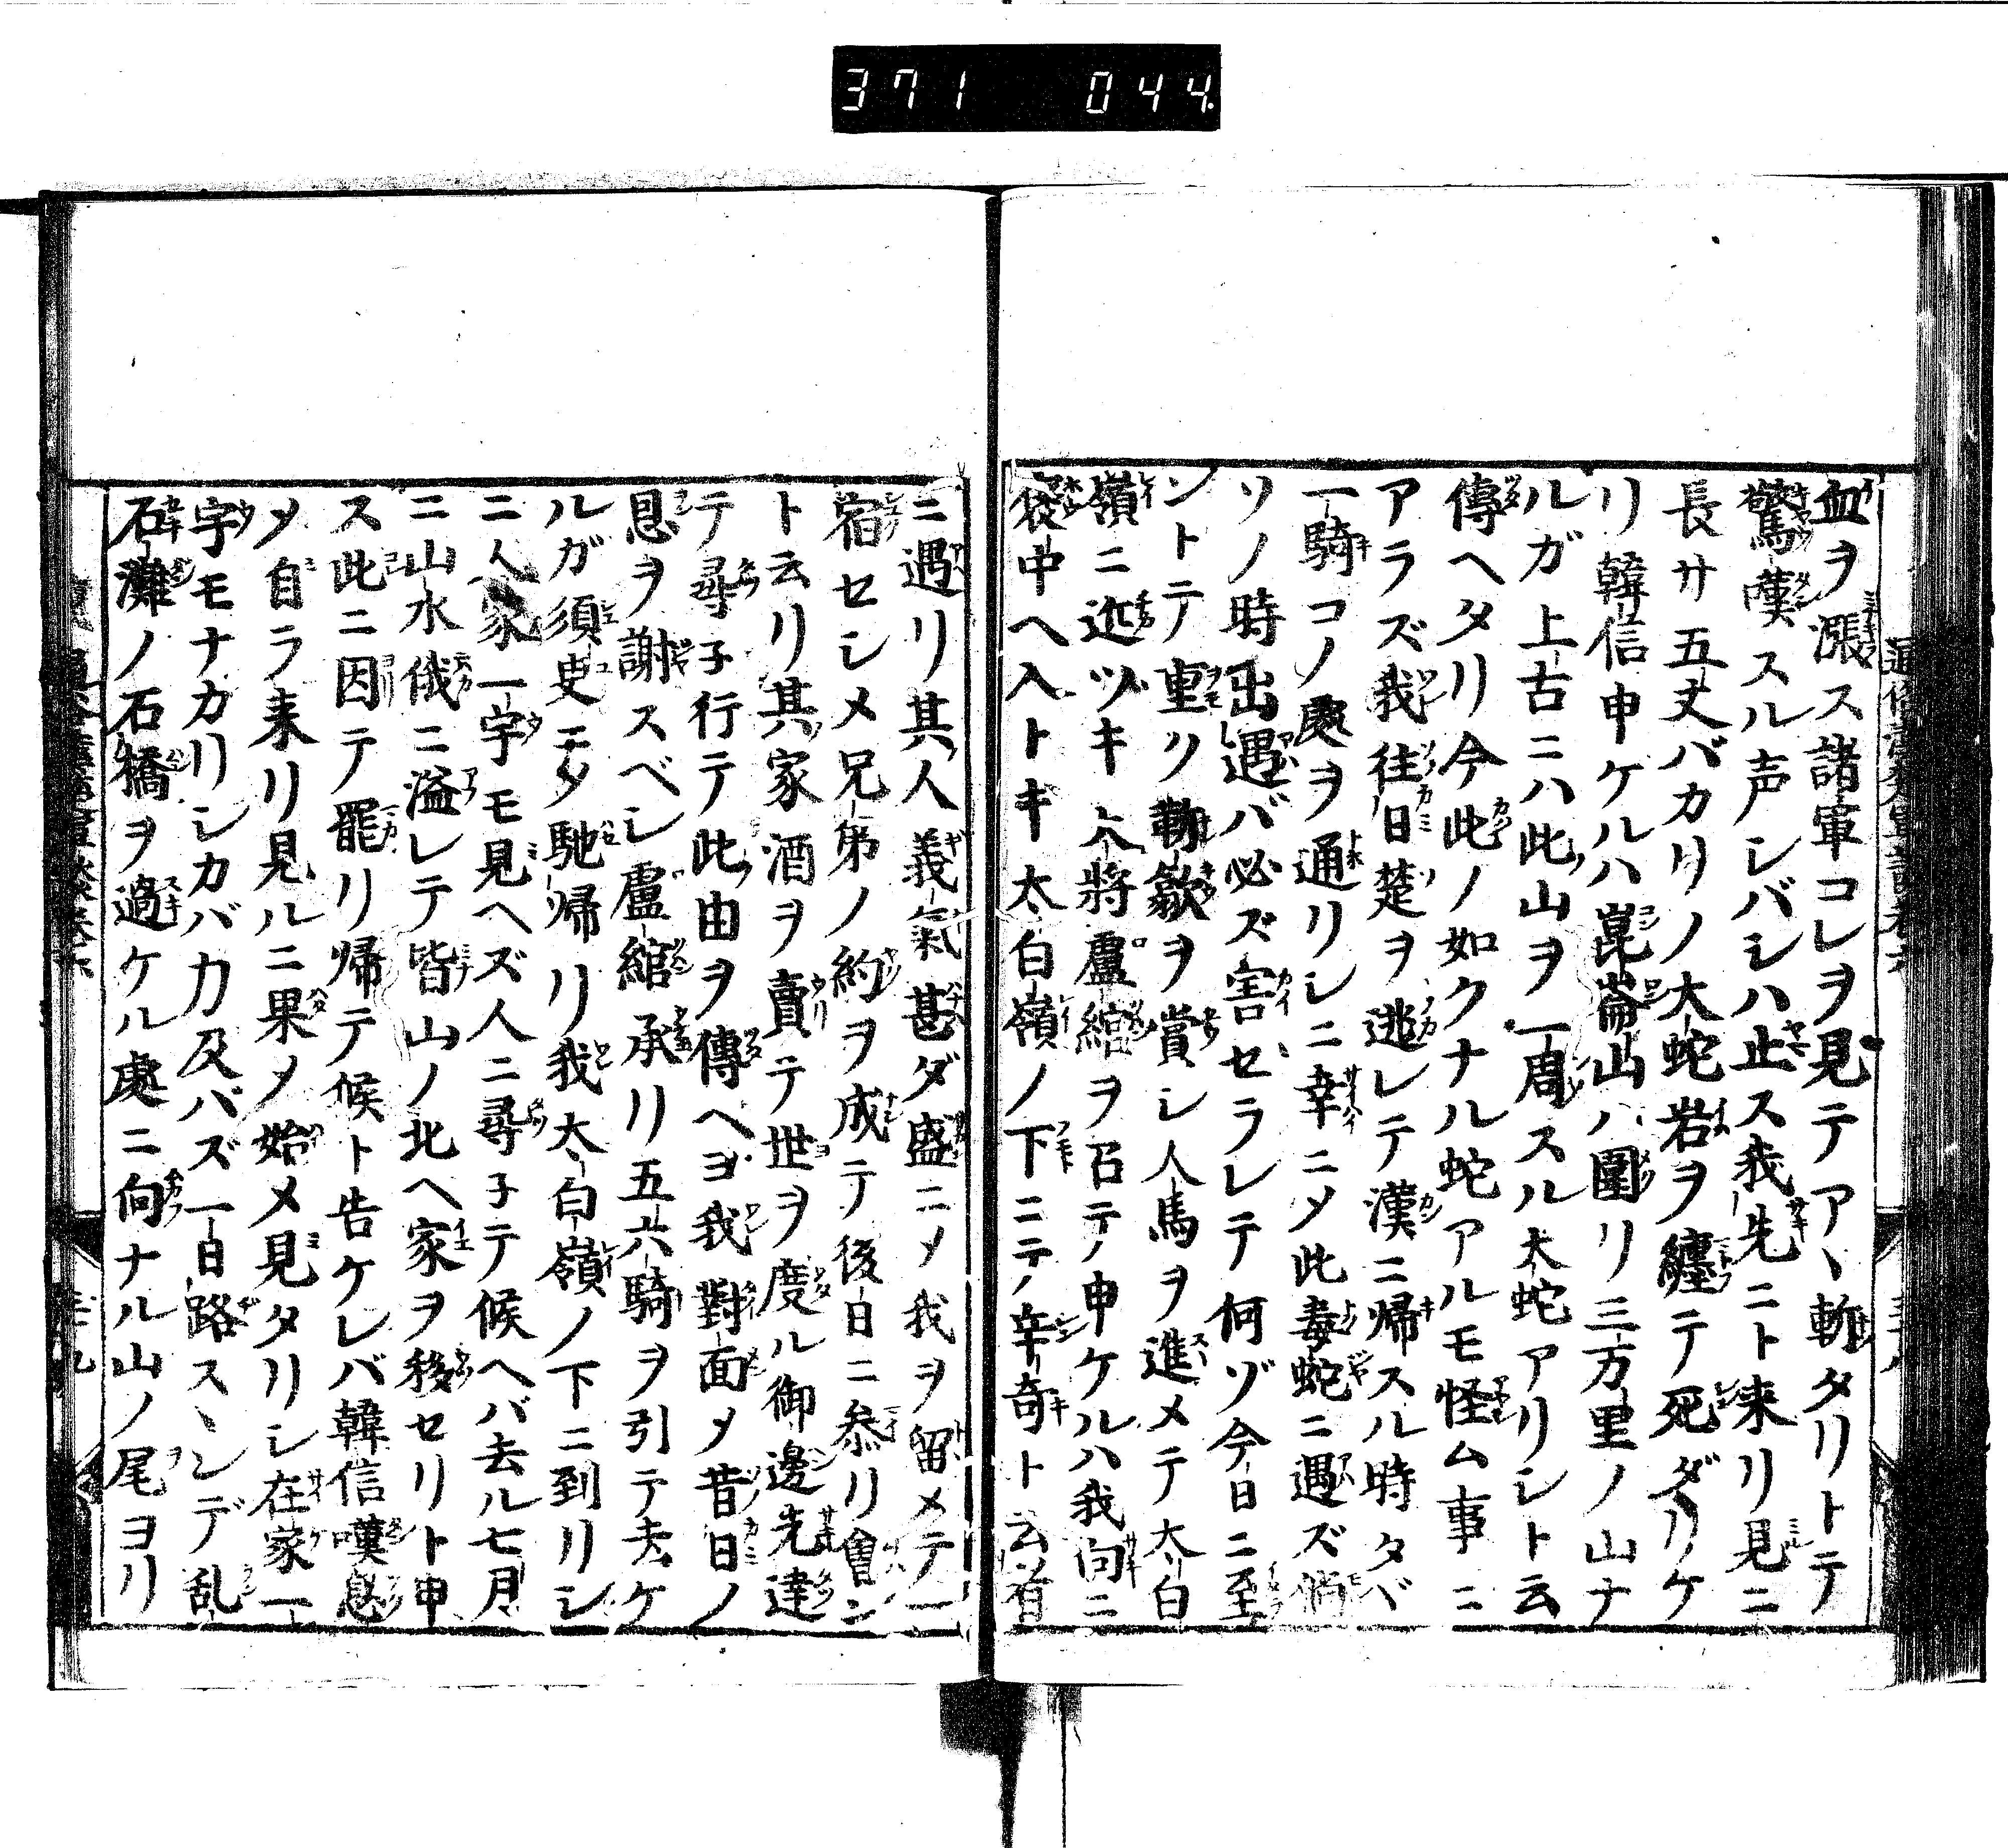 371 044
血ヲ漲ス諸軍コレヲ見テアヽ斬タリトテ
驚嘆スル声シバシハ止ス我先ニト来リ見ニ
長サ五丈バカリノ大蛇岩ヲ纏テ死ダリケ
リ韓信申ケルハ崑崙山ハ圍リ三万里ノ山ナ
ルガ上古ニハ此山ヲ一周スル大蛇アリシト云
傳ヘタリ今此ノ如クナル蛇アルモ怪ム事ニ
アラズ我往日楚ヲ逃レテ漢ニ帰スル時タヾ
一騎コノ處ヲ通リシニ幸ニメ此毒蛇ニ遇ズ倘
ソノ時出遇バ必ズ害セラレテ何ゾ今日ニ至
ントテ重ク勒歙ヲ賞シ人馬ヲ進メテ太白
嶺ニ近ヅキ大將盧綰ヲ召テ申ケルハ我向ニ
褒中ヘ入トキ太白嶺ノ下ニテ辛奇ト云者
ニ遇リ其人義氣甚ダ盛ニメ我ヲ留メテ一
宿セシメ兄弟ノ約ヲ成テ後日ニ参リ會ン
ト云リ其家酒ヲ賣テ世ヲ度ル御邊先達
テ尋子行テ此由ヲ傳ヘヨ我對面メ昔日ノ
恩ヲ謝スベシ盧綰承リ五六騎ヲ引テ去ケ
ルガ須臾モタ馳帰リ我太白嶺ノ下ニ到リシ
ニ人家一宇モ見ヘズ人ニ尋子テ候ヘバ去ル七月
ニ山水俄ニ溢レテ皆山ノ北ヘ家ヲ移セリト申
ス此ニ因テ罷リ帰テ候ト告ケレバ韓信嘆息
メ自ラ来リ見ルニ果メ始メ見タリシ在家一
宇モナカリシカバ力及バズ一日路スヽンデ乱
石灘ノ石橋ヲ過ケル處ニ向ナル山ノ尾ヨリ